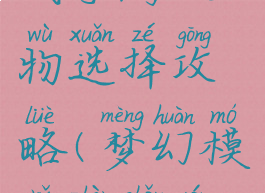 wù xuǎn zé gōng
物选择攻
lüè mèng huàn mó
略(梦幻模